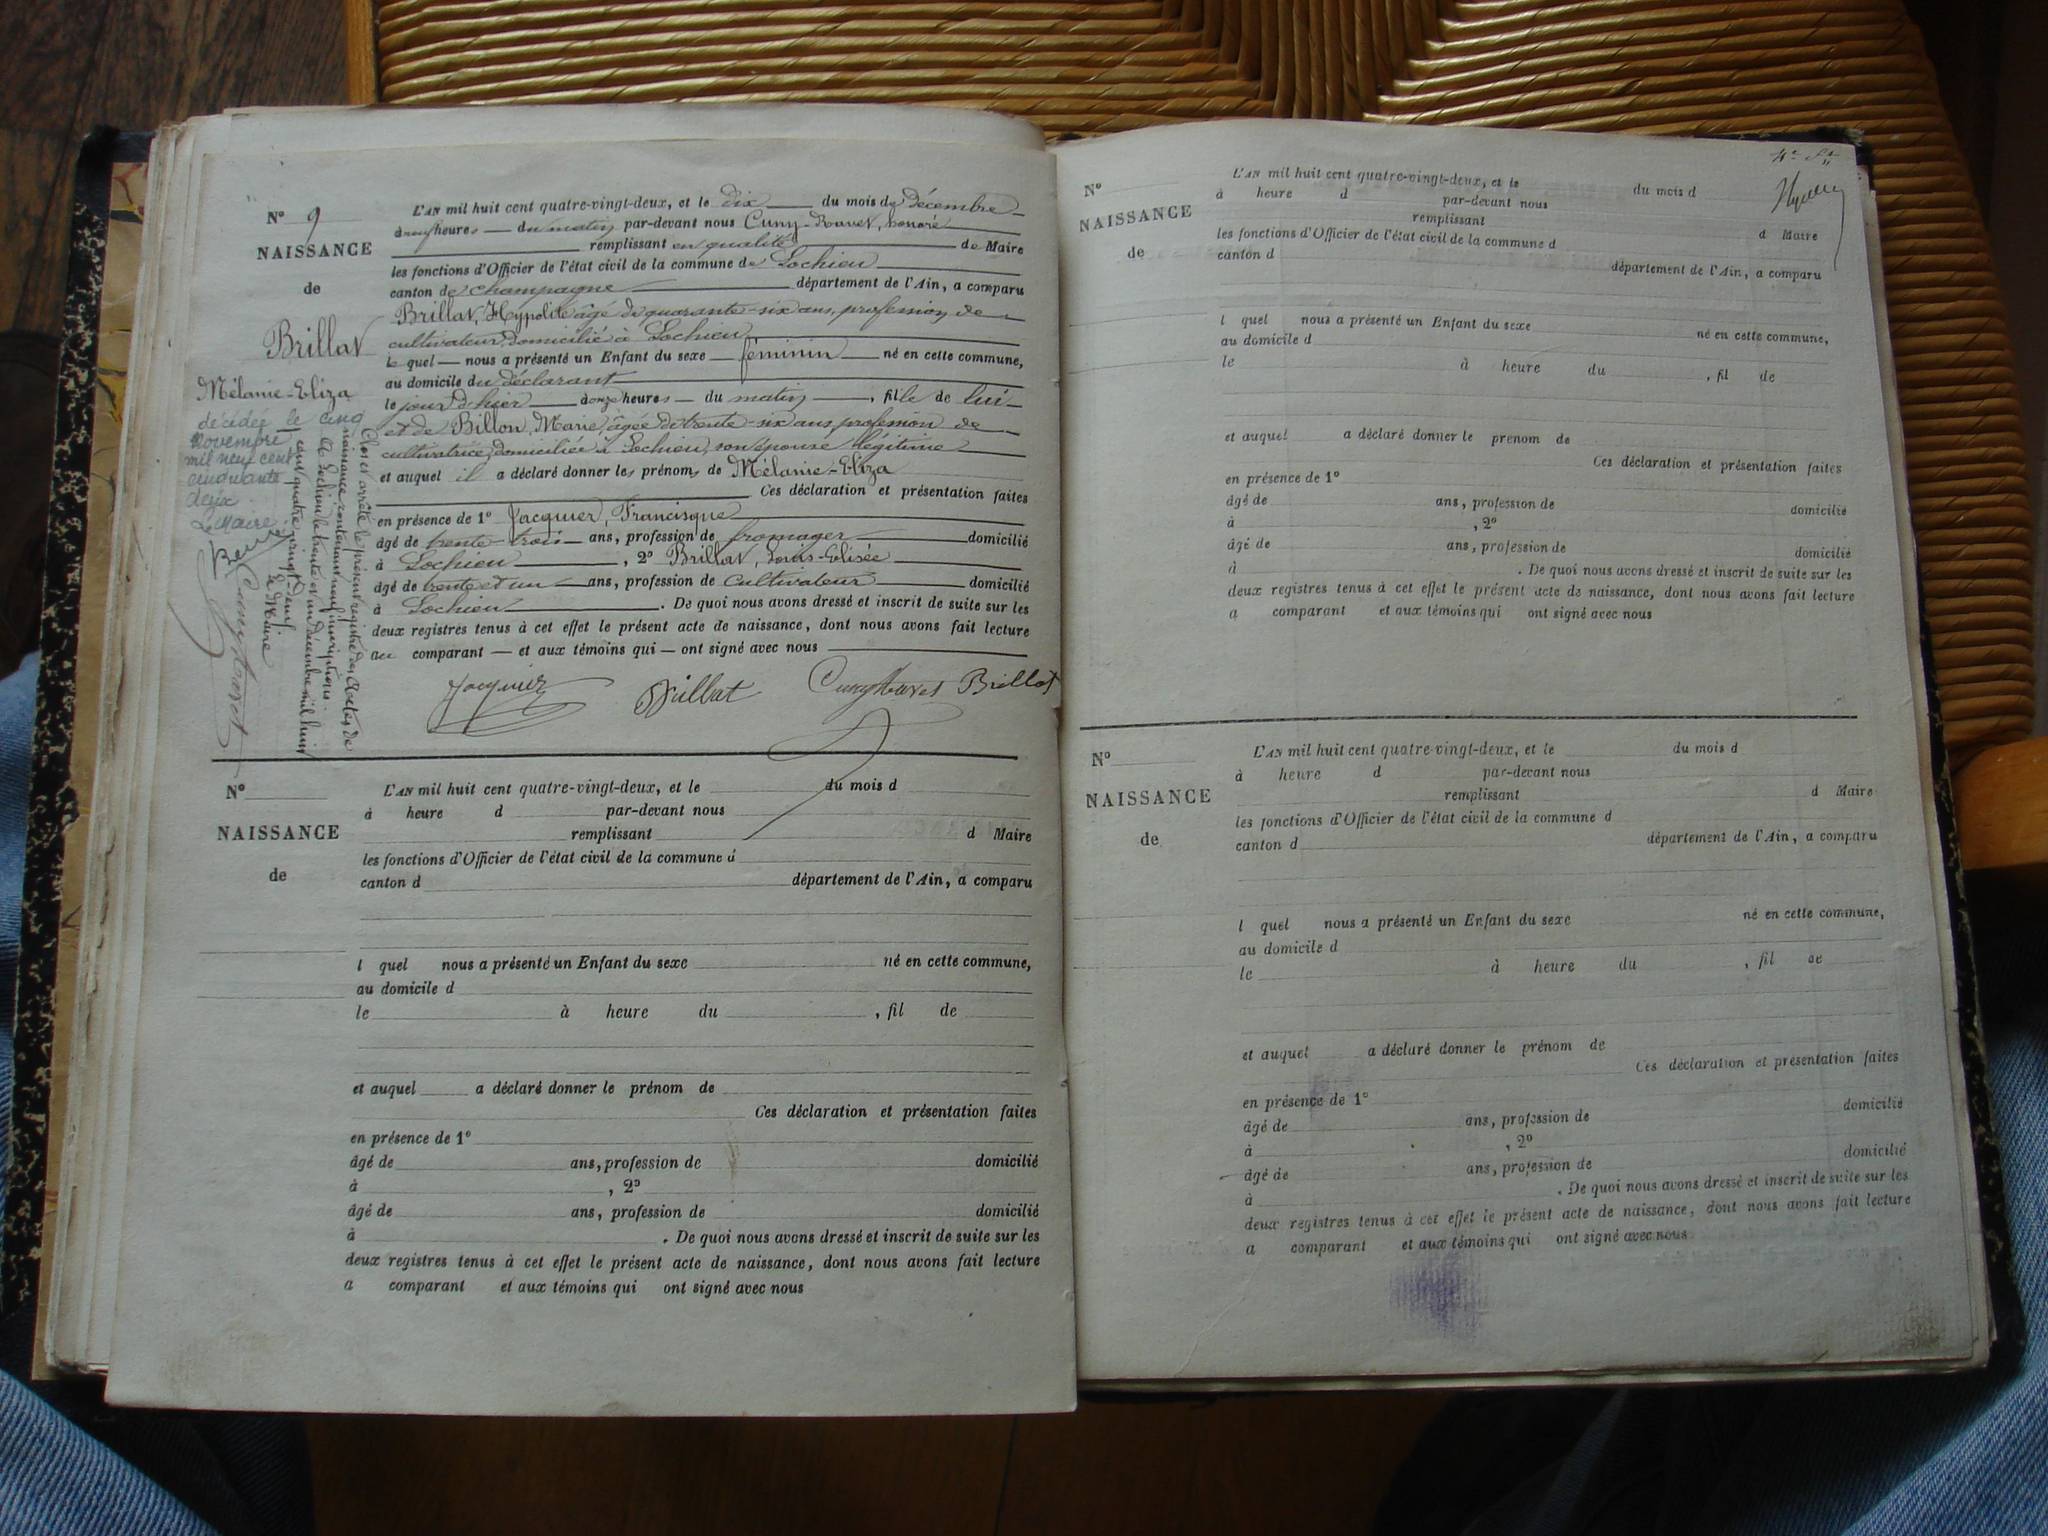 N° 9
NAISSANCE
de
Brillat
Mélanie-Eliza
décédée le cinq
novembre
mil neuf cent
cinquante
deux
Le Maire
Clos et arrêté le présent registre des actes de
naissance, contenant neuf inscriptions.
A Lochieu le trente et un décembre mil huit
cent quatre vingt deux.
Le Maire
Cuny-Bovet
L'AN mil huit cent quatre-vingt-deux, et le dix du mois de Décembre
à neuf heures du matin par-devant nous Cuny-Bovet, honoré
remplissant en qualité de Maire
les fonctions d'Officier de l'état civil de la commune de Lochieu
canton de champagne département de l'Ain, a comparu
Brillat, Hypolite âgé de quarante-six ans, profession de
cultivateur, domicilié à Lochieu
le quel nous a présenté un Enfant du sexe féminin né en cette commune,
au domicile du déclarant
le jour d'hier à onze heures du matin, fille de lui
et de Billon, Marie, âgée de trente-six ans, profession de
cultivatrice, domiciliée à Lochieu, son épouse légitime
et auquel il a déclaré donner les prénoms de Mélanie-Eliza
Ces déclaration et présentation faites
en présence de 1° Jacquier, Francisque
âgé de trente-trois ans, profession de fromager domicilié
à Lochieu, 2° Brillat, Louis-Elisée
âgé de trente et un ans, profession de Cultivateur domicilié
à Lochieu. De quoi nous avons dressé et inscrit de suite sur les
deux registres tenus à cet effet le présent acte de naissance, dont nous avons fait lecture
au comparant et aux témoins qui ont signé avec nous
Jacquier Brillat Cuny-Bovet Brillat
N°
NAISSANCE
de
L'AN mil huit cent quatre-vingt-deux, et le du mois d
à heure d par-devant nous
remplissant d Maire
les fonctions d'Officier de l'état civil de la commune d
canton d département de l'Ain, a comparu
l quel nous a présenté un Enfant du sexe né en cette commune,
au domicile d
le à heure du , fil de
et auquel a déclaré donner le prénom de
Ces déclaration et présentation faites
en présence de 1°
âgé de ans, profession de domicilié
à , 2°
âgé de ans, profession de domicilié
à . De quoi nous avons dressé et inscrit de suite sur les
deux registres tenus à cet effet le présent acte de naissance, dont nous avons fait lecture
a comparant et aux témoins qui ont signé avec nous
N°
NAISSANCE
de
L'AN mil huit cent quatre-vingt-deux, et le du mois d
à heure d par-devant nous
remplissant
les fonctions d'Officier de l'état civil de la commune d d Maire
canton d département de l'Ain, a comparu
l quel nous a présenté un Enfant du sexe né en cette commune,
au domicile d
le à heure du , fil de
et auquel a déclaré donner le prenom de
Ces déclaration et présentation faites
en présence de 1°
âgé de ans, profession de domicilié
à , 2°
âgé de ans, profession de domicilié
à . De quoi nous avons dressé et inscrit de suite sur les
deux registres tenus à cet effet le présent acte de naissance, dont nous avons fait lecture
a comparant et aux témoins qui ont signé avec nous
N°
NAISSANCE
de
L'AN mil huit cent quatre-vingt-deux, et le du mois d
à heure d par-devant nous
remplissant d Maire
les fonctions d'Officier de l'état civil de la commune d
canton d département de l'Ain, a comparu
l quel nous a présenté un Enfant du sexe né en cette commune,
au domicile d
le à heure du , fil de
et auquel a déclaré donner le prénom de
Ces déclaration et présentation faites
en présence de 1°
âgé de ans, profession de domicilié
à , 2°
âgé de ans, profession de domicilié
à . De quoi nous avons dressé et inscrit de suite sur les
deux registres tenus à cet effet le présent acte de naissance, dont nous avons fait lecture
a comparant et aux témoins qui ont signé avec nous